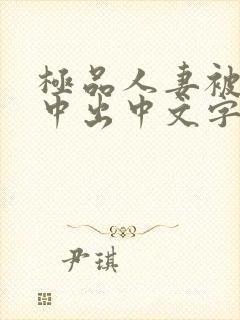 極品人妻被
中出中文字
尹琪